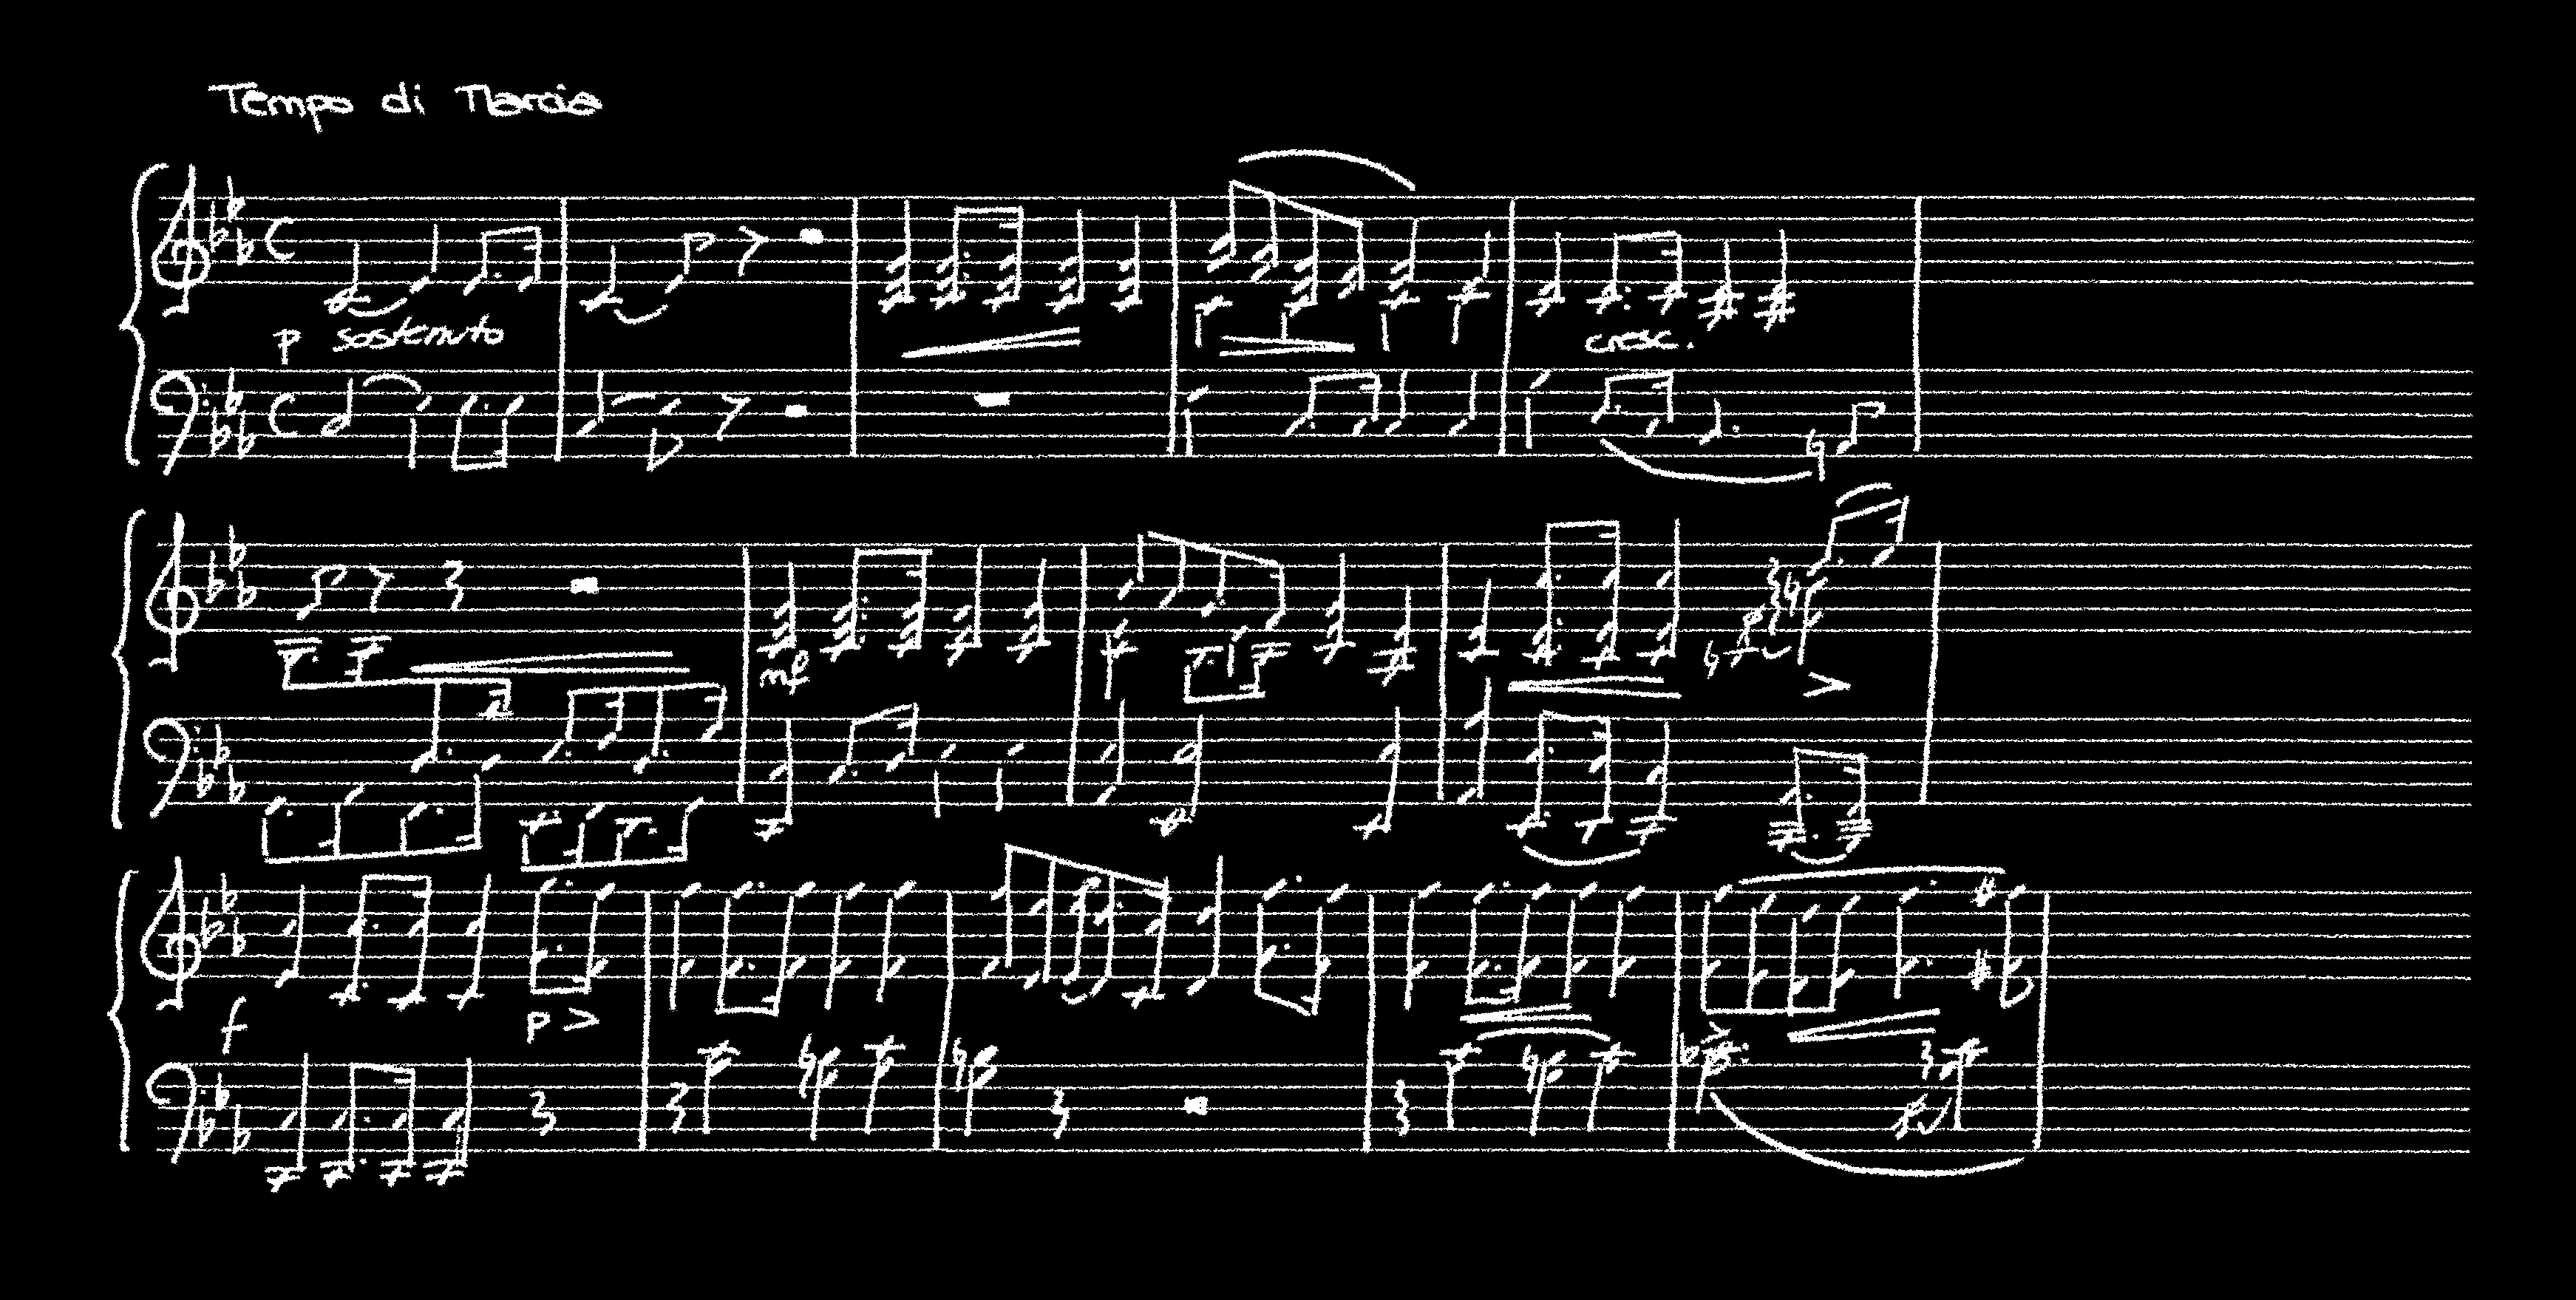 Tempo di Marcia
p sostenuto
cresc.
mf
f
p